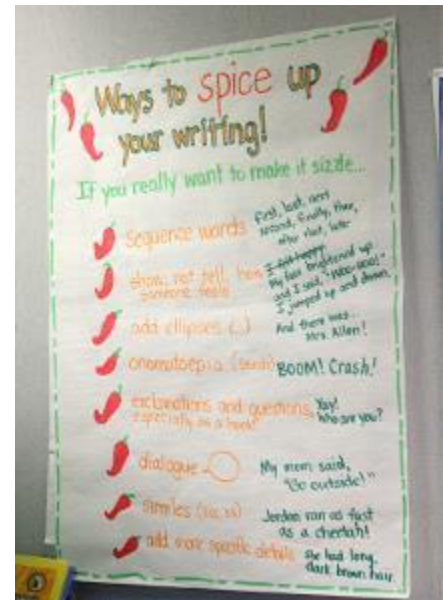 Ways to spice up
your writing!
If you really want to make it sizzle...
sequence words
first, last, next
second, finally, then,
after that, later
show, not tell, how
someone feels
I felt happy
My face brightened up
and I said, "Woo-hoo!"
I jumped up and down.
add ellipses (...)
And there was...
Mrs. Allen!
(sounds)
BOOM! Crash!
and questions,
especially as a hook!
Yay!
Who are you?
dialogue
My mom said,
"Go outside!"
similes
Jordan ran as fast
as a cheetah!
add more specific details
She had long,
dark brown hair.